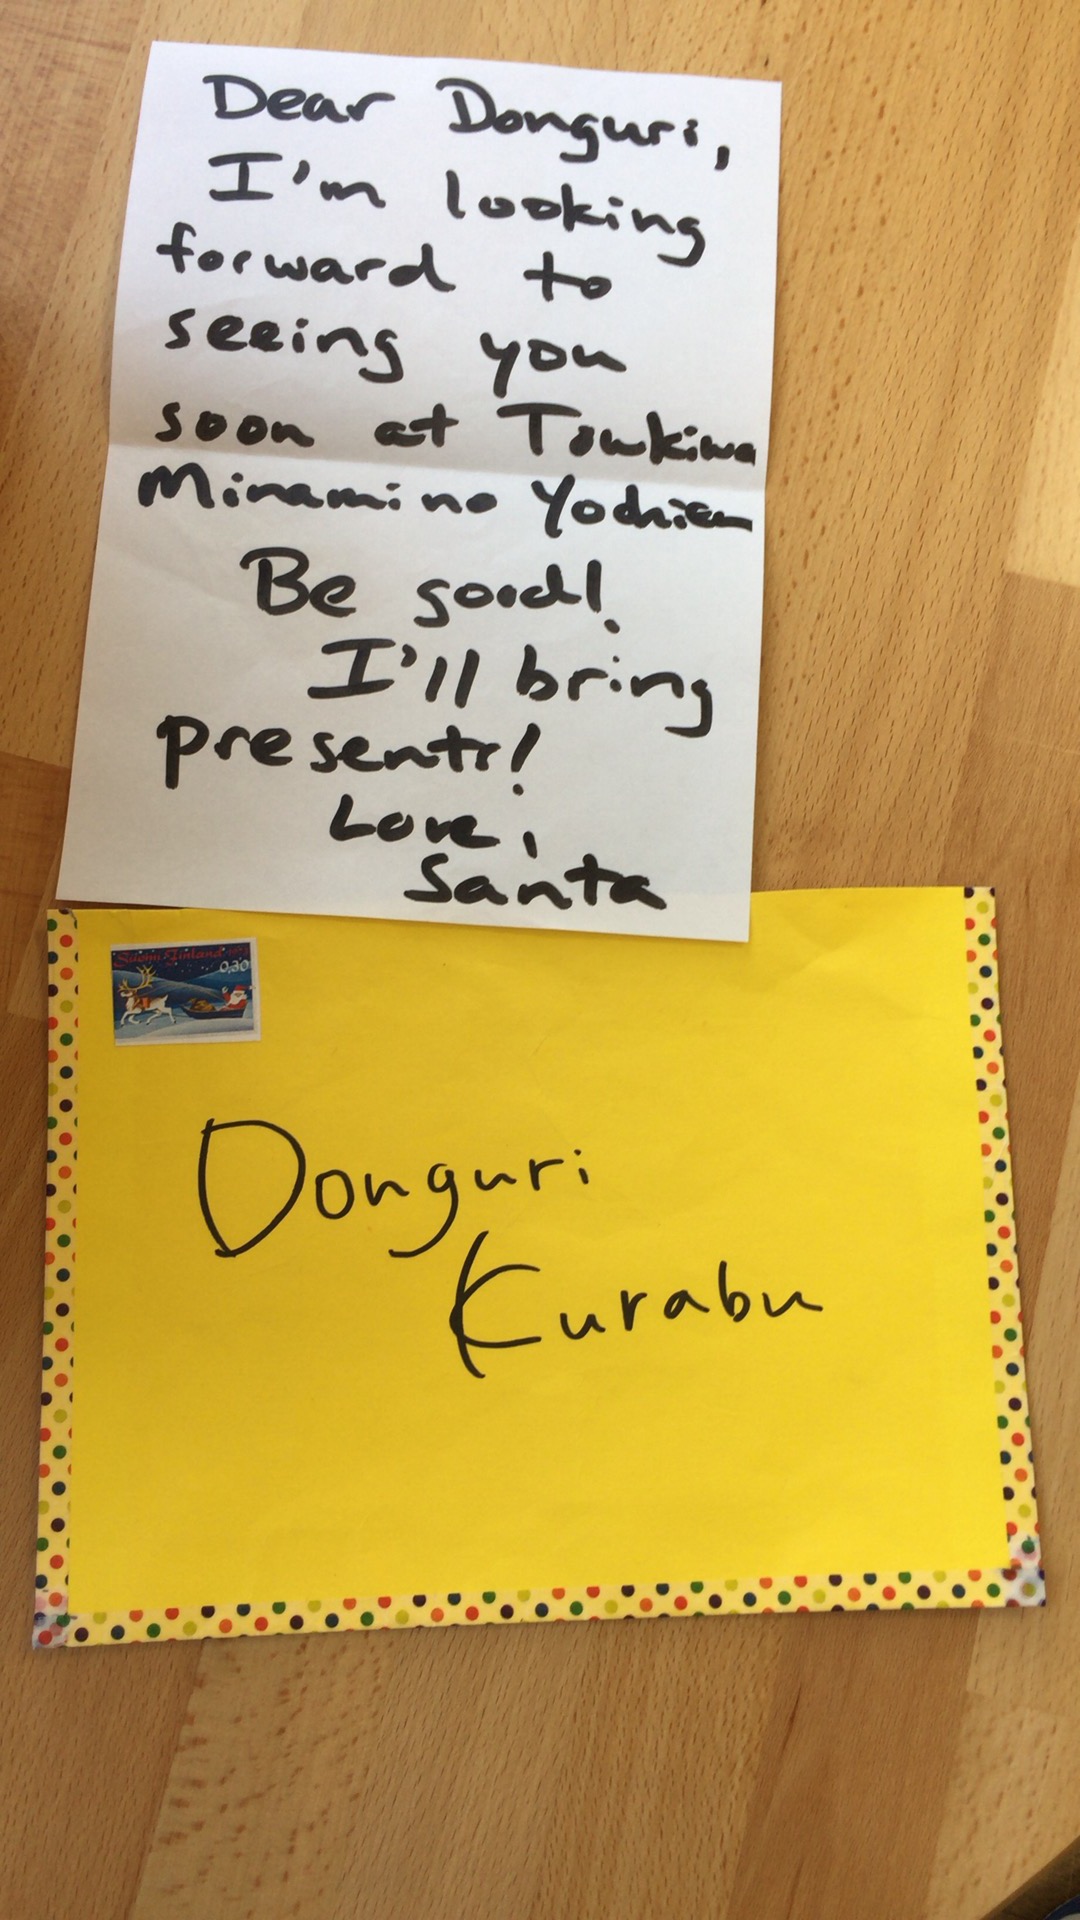 Dear Donguri,
I'm looking
forward to
seeing you
soon at Towkiwa
Minamino Yochien
Be good!
I'll bring
presents!
Love,
Santa
Suomi Finland
0,30
Donguri
Kurabu